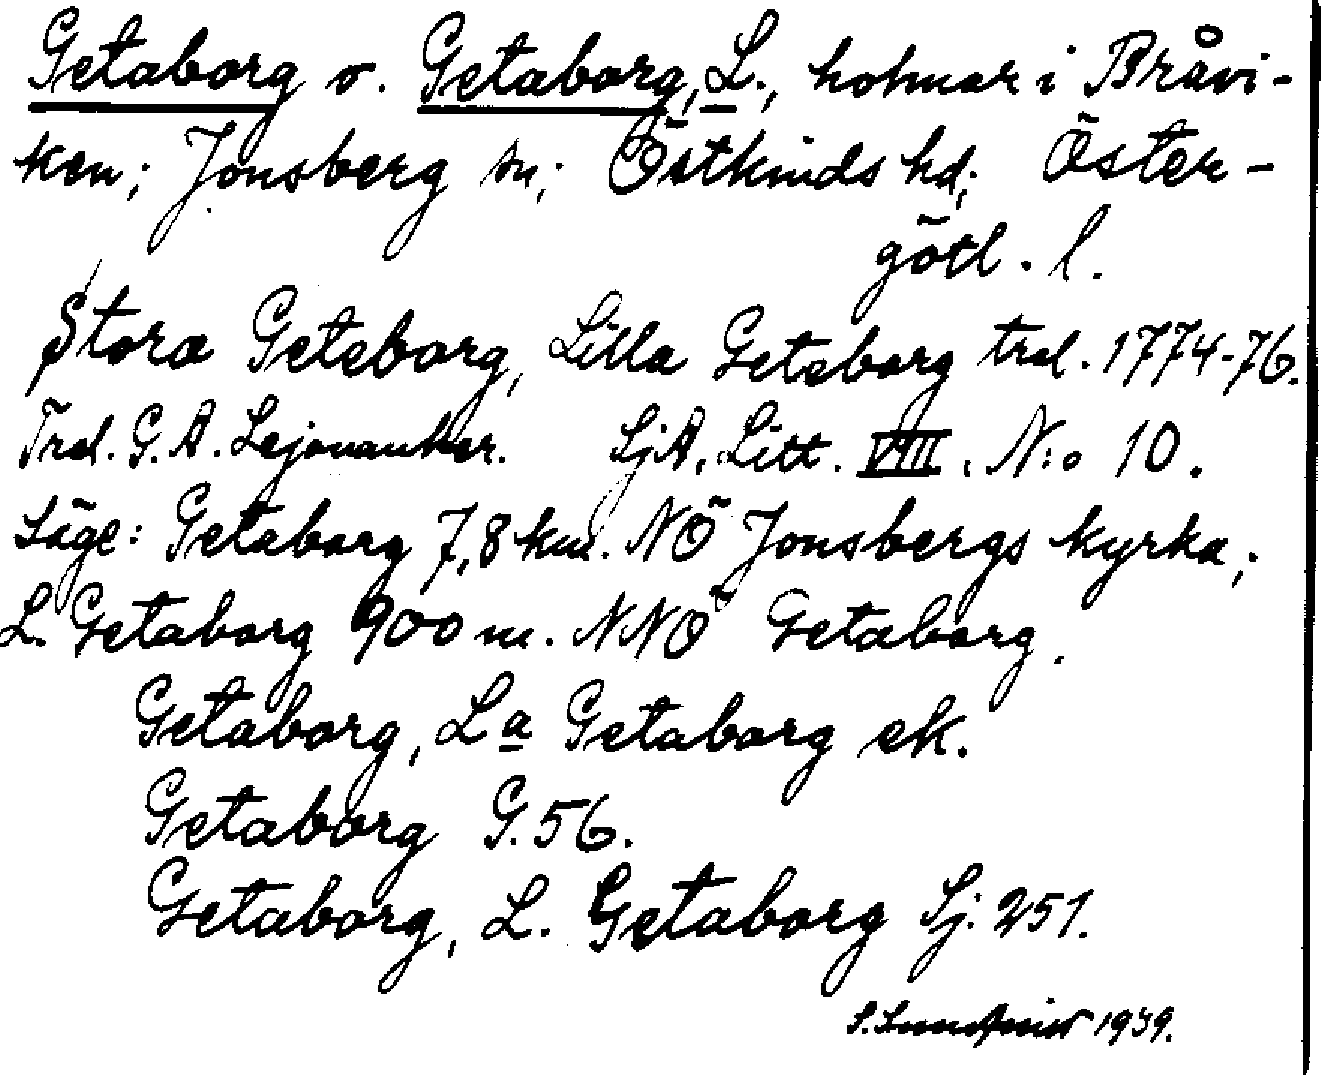 Getaborg o. Getaborg, L., holmar i Bråvi-
ken; Jonsberg sn; Östkinds hd; Öster-
götl. l.
Stora Geteborg, Lilla Geteborg trol. 1774-76.
Trol. G. A. Lejonanker. SjA, Litt. VIII. N:o 10.
Läge: Getaborg 7,8 km. NÖ Jonsbergs kyrka;
L. Getaborg 900 m. NNÖ Getaborg.
Getaborg, La Getaborg ek.
Getaborg G. 56.
Getaborg, L. Getaborg Sj. 251.
1939.